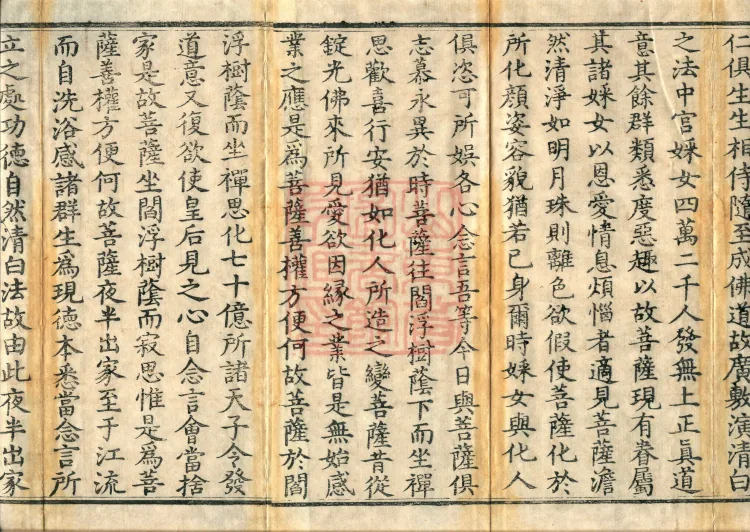 仁俱生生相侍隨至成佛道故廣敷演清白
之法中宮婇女四萬二千人發無上正真道
意其餘群類悉度惡趣以故菩薩現有眷屬
其諸婇女以恩愛情息煩惱者適見菩薩澹
然清淨如明月珠則離色欲假使菩薩化於
所化顏姿容貌猶若己身爾時婇女與化人
俱恣可所娛各心念言吾等今日與菩薩俱
志慕永異於時菩薩往閻浮樹蔭下而坐禪
思歡喜行安猶如化人所造之變菩薩昔從
錠光佛來所見愛欲因緣之業皆是無始感
業之應是為菩薩善權方便何故菩薩於閻
浮樹蔭而坐禪思化七十億所諸天子令發
道意又復欲使皇后見之心自念言會當捨
家是故菩薩坐閻浮樹蔭而寂思惟是為菩
薩善權方便何故菩薩夜半出家至于江流
而自洗浴感諸群生為現德本悉當念言所
立之處功德自然清白法故由此夜半出家